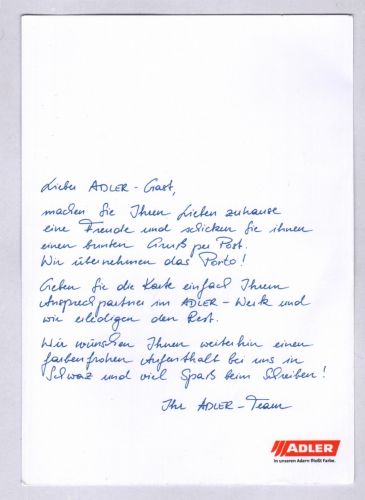 Lieber ADLER-Gast,
machen Sie Ihren Lieben zuhause
eine Freude und schicken Sie ihnen
einen bunten Gruß per Post.
Wir übernehmen das Porto!
Geben Sie die Karte einfach Ihrem
Ansprechpartner im ADLER-Werk und
wir erledigen den Rest.
Wir wünschen Ihnen weiterhin einen
farbenfrohen Aufenthalt bei uns in
Schwaz und viel Spaß beim Schreiben!
Ihr ADLER-Team
ADLER
In unseren Adern fließt Farbe.